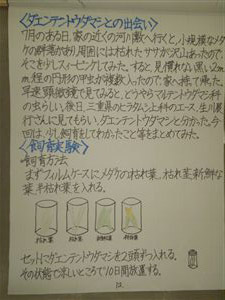 <ダエンテントウダマシとの出会い>
7月のある日、家の近くの河川敷へ行くと、小規模なメダ
ケの群落があり、周囲には枯れたササが沢山あったので、
そこを少しスィーピングしてみた。すると、見慣れない黒い2m
m程の円形の甲虫が複数入ったので、家へ持って帰った。
早速顕微鏡で見てみると、どうやらマルテントウダマシ科
の虫らしい。後日、三重県のヒラタムシ上科のエース、生川展
行さんに見てもらい、ダエンテントウダマシと分かった。今
回は、少し飼育をしてわかったこと等をまとめてみた。
<飼育実験>
飼育方法
まずフィルムケースにメダケの枯れ葉、枯れ茎、新鮮な
葉、半枯れ葉を入れる。
枯れ葉 枯れ茎 新鮮な葉 半枯れ葉
セットにダエンテントウダマシを2頭ずつ入れる。
その状態で涼しいところで10日間放置する。